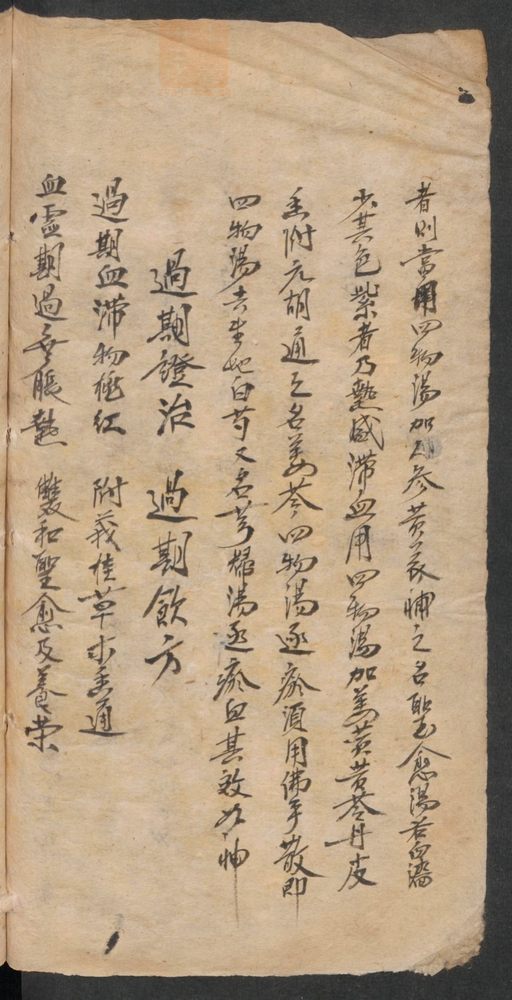 者則當用四物湯加人參黃芪補之名聖愈湯若血濇
少其色紫者乃熱盛滯血用四物湯加姜黃芩丹皮
香附元胡通之名姜芩四物湯逐瘀須用佛手散即
四物湯去生地白芍又名芎歸湯逐瘀血其效如神
過期證治 過期飲方
過期血滯物桃紅 附莪桂草木香通
血虛期過無脹熱 雙和聖愈及養榮